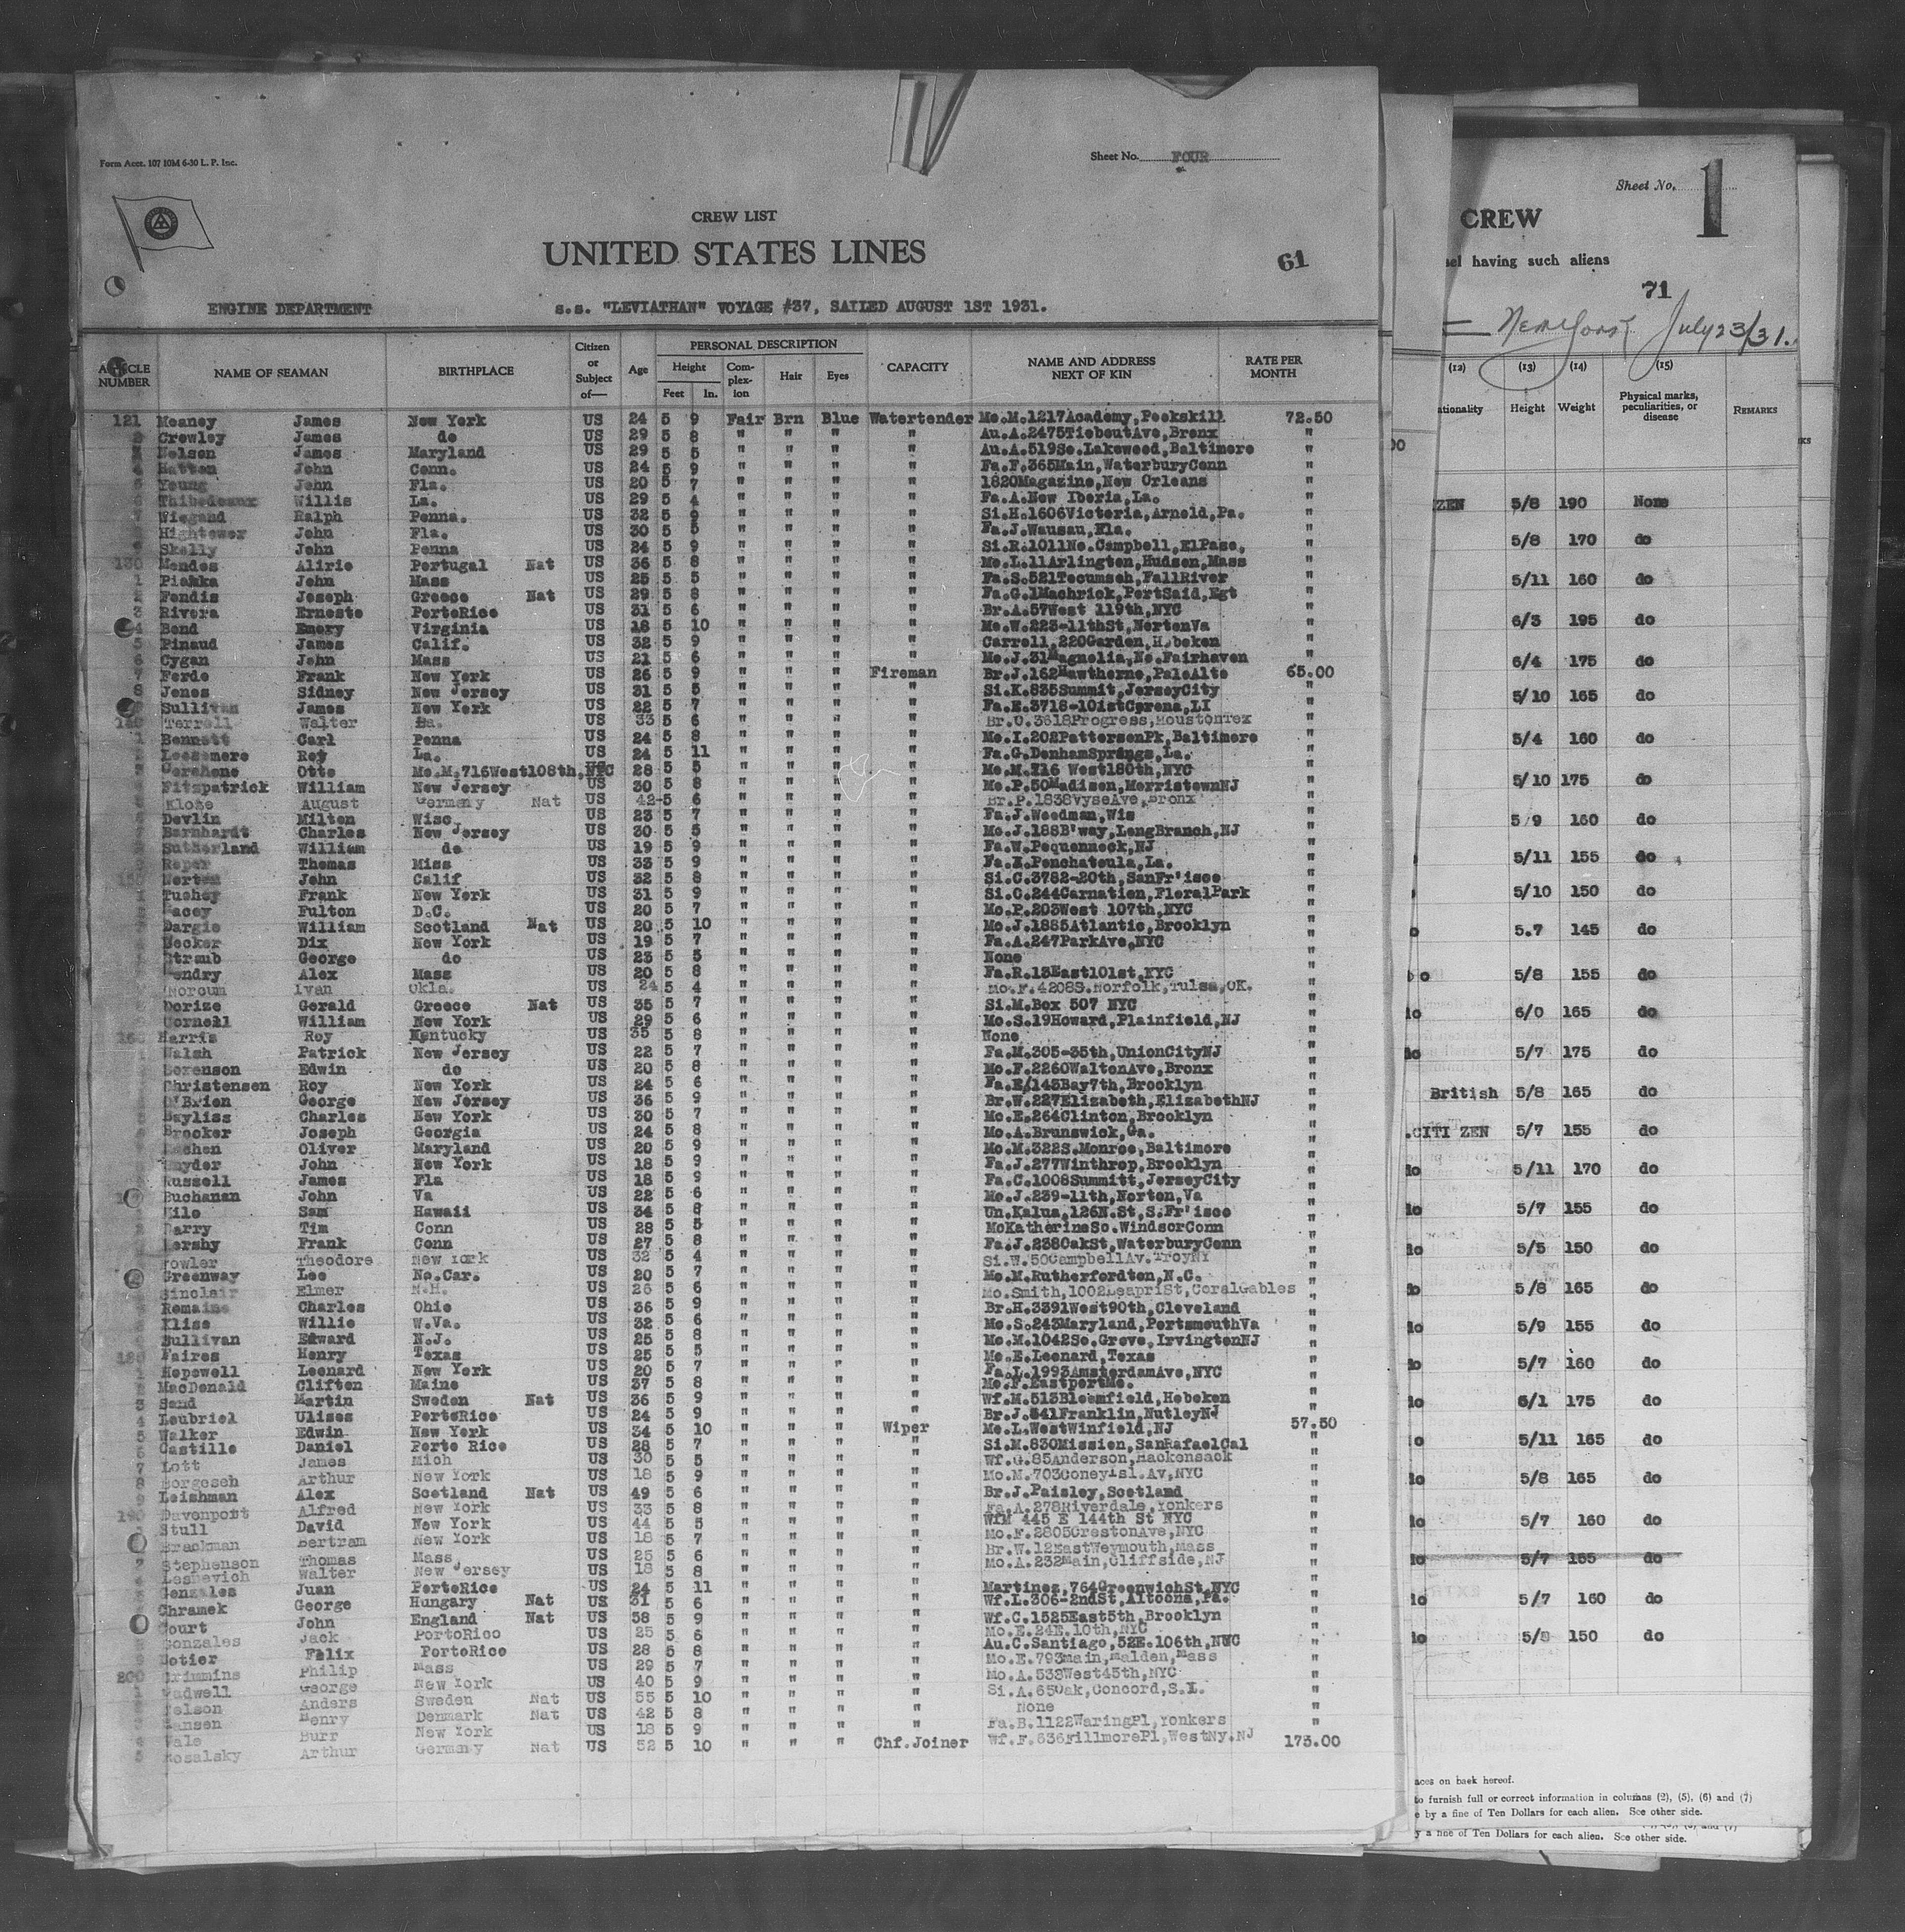 Form Acct. 107 10M 6-30 L. P. Inc.
Sheet No. FOUR
CREW LIST
UNITED STATES LINES
61
ENGINE DEPARTMENT s.s. "LEVIATHAN" VOYAGE #37, SAILED AUGUST 1ST 1931.
ARTICLE NUMBER NAME OF SEAMAN BIRTHPLACE Citizen or Subject of— Age PERSONAL DESCRIPTION Height Feet In. Complexion Hair Eyes CAPACITY NAME AND ADDRESS NEXT OF KIN RATE PER MONTH
121 Meaney James New York US 24 5 9 Fair Brn Blue Watertender Mo.M.1217Academy,Peekskill 72.50
2 Crowley James do US 29 5 8 " " " " Au.A.2475TieboutAve,Bronx "
Nelson James Maryland US 29 5 5 " " " " Au.A.519So.Lakewood,Baltimore "
4 Hatton John Conn. US 24 5 9 " " " " Fa.F.365Main,WaterburyConn "
5 Young John Fla. US 20 5 7 " " " " 1820Magazine,New Orleans "
6 Thibedeaux Willis La. US 29 5 4 " " " " Fa.A.New Iberia,La. "
7 Wiegand Ralph Penna. US 32 5 9 " " " " Si.H.1606Victoria,Arnold,Pa. "
Hightower John Fla. US 30 5 5 " " " " Fa.J.Wausau,Fla. "
Skelly John Penna US 24 5 9 " " " " Si.R.1011No.Campbell,ElPaso, "
130 Mendes Alirio Portugal Nat US 36 5 8 " " " " Mo.L.11Arlington,Hudson,Mass "
1 Piahka John Mass US 25 5 5 " " " " Fa.S.521Tecumseh,FallRiver "
2 Fendis Joseph Greece Nat US 29 5 8 " " " " Fa.G.1Machrick,PortSaid,Egt "
3 Rivera Ernesto PortoRico US 31 5 6 " " " " Br.A.57West 119th,NYC "
4 Bond Emory Virginia US 18 5 10 " " " " Mo.W.223-11thSt,NortonVa "
5 Pinaud James Calif. US 32 5 9 " " " " Carroll,220Garden,Hoboken "
6 Cygan John Mass US 21 5 6 " " " " Mo.J.31Magnolia,No.Fairhaven "
7 Ferde Frank New York US 26 5 9 " " " Fireman Br.J.162Hawthorne,PaloAlto 65.00
8 Jones Sidney New Jersey US 31 5 5 " " " " Si.K.835Summit,JerseyCity "
Sullivan James New York US 22 5 7 " " " " Fa.E.3718-101stCorona,LI "
140 Terrell Walter US 33 5 6 " " " " Br.O.3618Progress,HoustonTex "
1 Bennett Carl Penna US 24 5 8 " " " " Mo.I.202PattersonPk,Baltimore "
Leesemere Roy La. US 24 5 11 " " " " Fa.G.DenhamSprings,La. "
Otto Mo.M.716West108th,NYC 28 5 5 " " " " Mo.M.716 West180th,NYC "
Fitzpatrick William New Jersey US 30 5 8 " " " " Mo.P.50Madison,MorristownNJ "
Klose August Germany Nat US 42 5 6 " " " " Br.P.1838VyseAve,Bronx "
Devlin Milton Wisc US 23 5 7 " " " " Fa.J.Woodman,Wis "
Barnhardt Charles New Jersey US 30 5 5 " " " " Mo.J.188B'way,LongBranch,NJ "
Sutherland William do US 19 5 9 " " " " Fa.W.Pequannock,NJ "
Roper Thomas Miss US 33 5 9 " " " " Fa.E.Ponchatoula,La. "
150 Norton John Calif US 32 5 8 " " " " Si.C.3782-20th,SanFr'isco "
Tuohey Frank New York US 31 5 9 " " " " Si.C.244Carnation,FloralPark "
Fulton D.C. US 20 5 7 " " " " Mo.P.203West 107th,NYC "
Dargie William Scotland Nat US 20 5 10 " " " " Mo.J.1885Atlantic,Brooklyn "
Becker Dix New York US 19 5 7 " " " " Fa.A.247ParkAve,NYC "
Straub George do US 23 5 5 " " " " None "
Alex Mass US 20 5 8 " " " " Fa.R.13East101st,NYC "
Morcum Ivan Okla. US 24 5 4 " " " " Mo.F.4208S.Norfolk,Tulsa,OK. "
Dorize Gerald Greece Nat US 35 5 7 " " " " Si.M.Box 507 NYC "
Cornell William New York US 29 5 6 " " " " Mo.S.19Howard,Plainfield,NJ "
160 Harris Roy Kentucky US 35 5 8 " " " " None "
Walsh Patrick New Jersey US 22 5 7 " " " " Fa.M.305-35th,UnionCityNJ "
Sorenson Edwin do US 20 5 8 " " " " Mo.F.2260WaltonAve,Bronx "
Christensen Roy New York US 24 5 6 " " " " Fa.E/143Bay7th,Brooklyn "
O'Brien George New Jersey US 36 5 9 " " " " Br.W.227Elizabeth,ElizabethNJ "
Bayliss Charles New York US 30 5 7 " " " " Mo.E.264Clinton,Brooklyn "
Brocker Joseph Georgia US 24 5 8 " " " " Mo.A.Brunswick,Ga. "
Oliver Maryland US 20 5 9 " " " " Mo.M.322S.Monroe,Baltimore "
Snyder John New York US 18 5 9 " " " " Fa.J.277Winthrop,Brooklyn "
Russell James Fla US 18 5 9 " " " " Fa.C.1008Summitt,JerseyCity "
Buchanan John Va US 22 5 6 " " " " Mo.J.239-11th,Norton,Va "
Sam Hawaii US 34 5 8 " " " " Un.Kalua,126N.St,S.Fr'isco "
Tim Conn US 28 5 5 " " " " McKatherineSo.WindsorConn "
Frank Conn US 27 5 8 " " " " Fa.J.238OakSt,WaterburyConn "
Theodore New York US 32 5 4 " " " " Si.W.50CampbellAv.TroyNY "
Greenway Lee No.Car. US 20 5 7 " " " " Mo.M.Rutherfordton,N.C. "
Sinclair Elmer N.H. US 26 5 6 " " " " Mo.Smith,1002LeapriSt,CoralGables "
Remaine Charles Ohio US 36 5 9 " " " " Br.H.3391West90th,Cleveland "
Klise Willie W.Va. US 32 5 6 " " " " Mo.S.243Maryland,PortsmouthVa "
Sullivan Edward N.J. US 25 5 8 " " " " Mo.M.1042So.Grove,IrvingtonNJ "
180 Faires Henry Texas US 25 5 5 " " " " Mo.E.Leonard,Texas "
1 Hopewell Leonard New York US 20 5 7 " " " " Fa.L.1993AmsterdamAve,NYC "
2 MacDonald Clifton Maine US 37 5 8 " " " " Mo.F.EastportMe. "
3 Sand Martin Sweden Nat US 36 5 9 " " " " Wf.M.513Bloomfield,Hoboken "
4 Loubriel Ulises PortoRico US 24 5 9 " " " " Br.J.541Franklin,NutleyNJ "
5 Walker Edwin New York US 34 5 10 " " " Wiper Mo.L.WestWinfield,NJ 57.50
Castillo Daniel Porto Rico US 28 5 7 " " " " Si.M.830Mission,SanRafaelCal "
7 Lott James Mich US 30 5 5 " " " " Wf.G.85Anderson,Hackensack "
8 Borgesen Arthur New York US 18 5 9 " " " " Mo.M.703ConeyIsl.Av,NYC "
9 Leishman Alex Scotland Nat US 49 5 6 " " " " Br.J.Paisley,Scotland "
190 Davenport Alfred New York US 33 5 8 " " " " Fa.A.278Riverdale,Yonkers "
Stull David New York US 44 5 5 " " " " WfM 445 E 144th St NYC "
Brackman Bertram New York US 18 5 7 " " " " Mo.F.2805CrestonAve,NYC "
Stephenson Thomas Mass US 25 5 6 " " " " Br.W.12EastWeymouth,Mass "
Leshevich Walter New Jersey US 18 5 8 " " " " Mo.A.232Main,Cliffside,NJ "
Gonzales Juan PortoRico US 24 5 11 " " " " Martinez,764GreenwichSt,NYC "
Chramek George Hungary Nat US 31 5 6 " " " " Wf.L.306-2ndSt,Altoona,Pa. "
Court John England Nat US 58 5 9 " " " " Wf.C.1525East5th,Brooklyn "
Gonzales Jack PortoRico US 25 5 6 " " " " Mo.E.24E.10th,NYC "
Felix PortoRico US 28 5 8 " " " " Au.C.Santiago,52E.106th,NWC "
200 Crimmins Philip Mass US 29 5 7 " " " " Mo.E.793Main,Malden,Mass "
George New York US 40 5 9 " " " " Mo.A.533West45th,NYC "
Nelson Anders Sweden Nat US 55 5 10 " " " " Si.A.65Oak,Concord,S.I. "
Hansen Henry Denmark Nat US 42 5 8 " " " " None "
Vale Burr New York US 18 5 9 " " " " Fa.B.1122WaringPl,Yonkers "
Kosalsky Arthur Germany Nat US 52 5 10 " " " Chf.Joiner Wf.F.636FillmorePl,WestNy.NJ 173.00
Sheet No. 1
CREW
sel having such aliens
71
New York July 23/31.
(12) (13) (14) (15)
ationality Height Weight Physical marks, peculiarities, or disease REMARKS
ZEN 5/8 190 None
5/8 170 do
5/11 160 do
6/3 195 do
6/4 175 do
5/10 165 do
5/4 160 do
5/10 175 do
5/9 160 do
5/11 155 do
5/10 150 do
5.7 145 do
5/8 155 do
6/0 165 do
5/7 175 do
British 5/8 165 do
.CITI ZEN 5/7 155 do
5/11 170 do
5/7 155 do
5/5 150 do
5/8 165 do
5/9 155 do
5/7 160 do
6/1 175 do
5/11 165 do
5/8 165 do
5/7 160 do
5/7 155 do
5/7 160 do
5/8 150 do
aces on back hereof.
to furnish full or correct information in columns (2), (5), (6) and (7)
e by a fine of Ten Dollars for each alien. See other side.
y a fine of Ten Dollars for each alien. See other side.